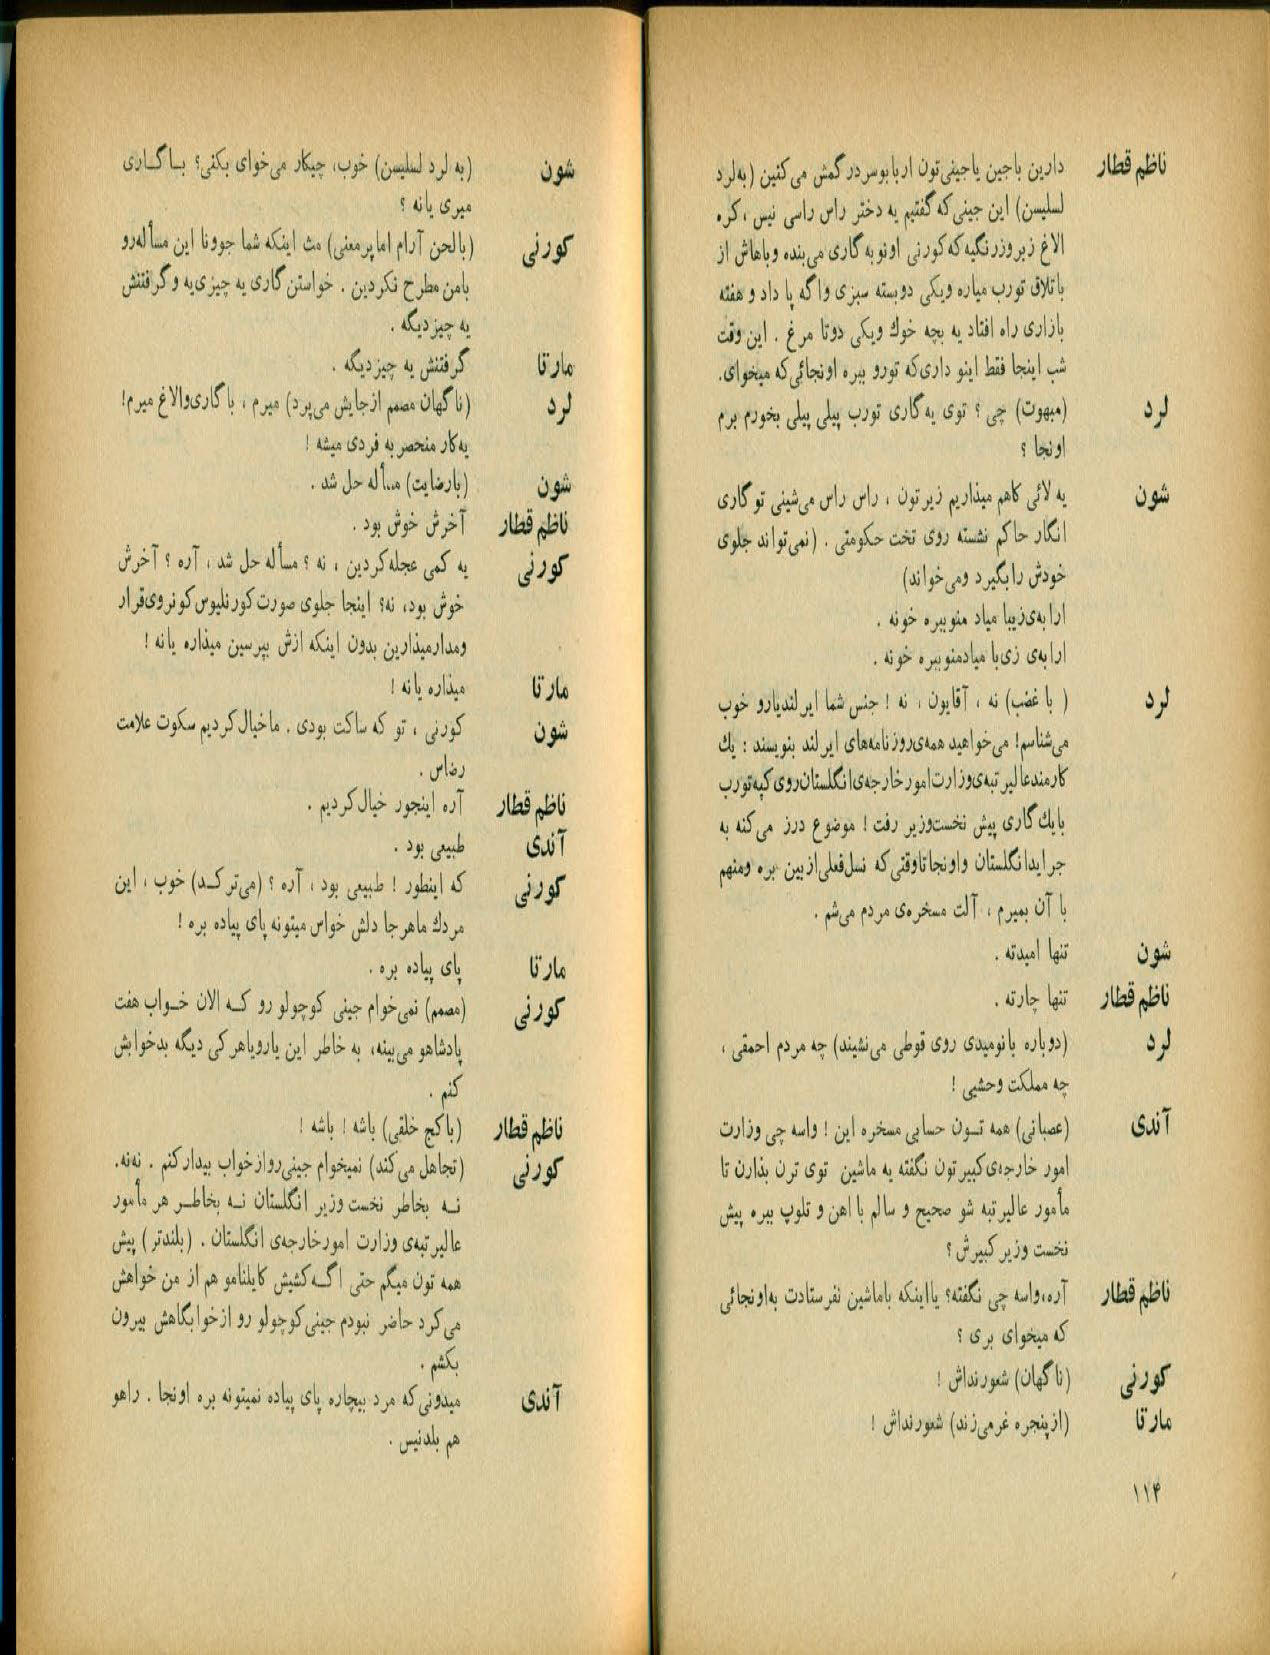 ناظم قطار دارین باجین یاجینی‌تون اربابوسردرگمش می‌کنین (به‌لرد
لسلیسن) این جینی‌که گفتیم یه دختر راس راسی نیس ، کره
الاغ زبروزرنگیه‌که کورنی اونوبه گاری می‌بنده وباهاش از
باتلاق تورب میاره ویکی دوبسته سبزی واگه پا داد و هفته
بازاری راه افتاد یه بچه خوك ویکی دوتا مرغ . این وقت
شب اینجا فقط اینو داری‌که تورو ببره اونجائی‌که میخوای.
لرد (مبهوت) چی ؟ توی یه گاری تورب پیلی پیلی بخورم برم
اونجا ؟
شون یه لائی کاهم میذاریم زیرتون ، راس راس می‌شینی توگاری
انگار حاکم نشسته روی تخت حکومتی . (نمی‌تواند جلوی
خودش رابگیرد ومی‌خواند)
ارابه‌ی‌زیبا میاد منوببره خونه .
ارابه‌ی زی‌با میادمنوببره خونه .
لرد ( با غضب) نه ، آقایون ، نه ! جنس شما ایرلندیارو خوب
می‌شناسم! می‌خواهید همه‌ی‌روزنامه‌های ایرلند بنویسند : یك
کارمندعالیرتبه‌ی‌وزارت‌امورخارجه‌ی‌انگلستان‌روی‌کپه‌تورب
بایك گاری پیش نخست‌وزیر رفت ! موضوع درز می‌کنه به
جرایدانگلستان واونجاتاوقتی‌که نسل‌فعلی‌ازبین بره ومنهم
با آن بمیرم ، آلت مسخره‌ی مردم می‌شم .
شون تنها امیدته .
ناظم قطار تنها چارته .
لرد (دوباره بانومیدی روی قوطی می‌نشیند) چه مردم احمقی ،
چه مملکت وحشیی !
آندی (عصبانی) همه تـون حسابی مسخره این ! واسه چی وزارت
امور خارجه‌ی‌کبیرتون نگفته یه ماشین توی ترن بذارن تا
مأمور عالیرتبه شو صحیح و سالم با اهن و تلوپ ببره پیش
نخست وزیرکبیرش ؟
ناظم قطار آره،واسه چی نگفته؟ یااینکه باماشین نفرستادت به‌اونجائی
که میخوای بری ؟
کورنی (ناگهان) شعورنداش !
مارتا (ازپنجره غرمی‌زند) شعورنداش !
۱۱۴
شون (به لرد لسلیسن) خوب، چیکار می‌خوای بکنی؟ بـاگـاری
میری یانه ؟
کورنی (بالحن آرام اماپرمعنی) مث اینکه شما جوونا این مسأله‌رو
بامن مطرح نکردین . خواستن گاری یه چیزی‌یه وگرفتنش
یه چیزدیگه .
مارتا گرفتنش یه چیزدیگه .
لرد (ناگهان مصمم ازجایش می‌پرد) میرم ، باگاری‌والاغ میرم!
یه‌کار منحصر به فردی میشه !
شون (بارضایت) مسأله حل شد .
ناظم قطار آخرش خوش بود .
کورنی یه کمی عجله‌کردین ، نه ؟ مسأله حل شد ، آره ؟ آخرش
خوش بود، نه؟ اینجا جلوی صورت‌کورنلیوس‌کونروی‌قرار
ومدارمیذارین بدون اینکه ازش بپرسین میذاره یانه !
مارتا میذاره یانه !
شون کورنی ، تو که ساکت بودی . ماخیال‌کردیم سکوت علامت
رضاس .
ناظم قطار آره اینجور خیال‌کردیم .
آندی طبیعی بود .
کورنی که اینطور ! طبیعی بود ، آره ؟ (می‌ترکـد) خوب ، این
مردك ماهرجا دلش خواس میتونه پای پیاده بره !
مارتا پای پیاده بره .
کورنی (مصمم) نمی‌خوام جینی کوچولو رو کـه الان خـواب هفت
پادشاهو می‌بینه، به خاطر این یارویاهرکی دیگه بدخوابش
کنم .
ناظم قطار (باکج خلقی) باشه ! باشه !
کورنی (تجاهل می‌کند) نمیخوام جینی‌روازخواب بیدارکنم . نه‌نه.
نـه بخاطر نخست وزیر انگلستان نـه بخاطـر هر مأمور
عالیرتبه‌ی وزارت امورخارجه‌ی انگلستان . (بلندتر) پیش
همه تون میگم حتی اگـه‌کشیش کایلنامو هم از من خواهش
می‌کرد حاضر نبودم جینی‌کوچولو رو ازخوابگاهش بیرون
بکشم .
آندی میدونی‌که مرد بیچاره پای پیاده نمیتونه بره اونجا . راهو
هم بلدنیس .